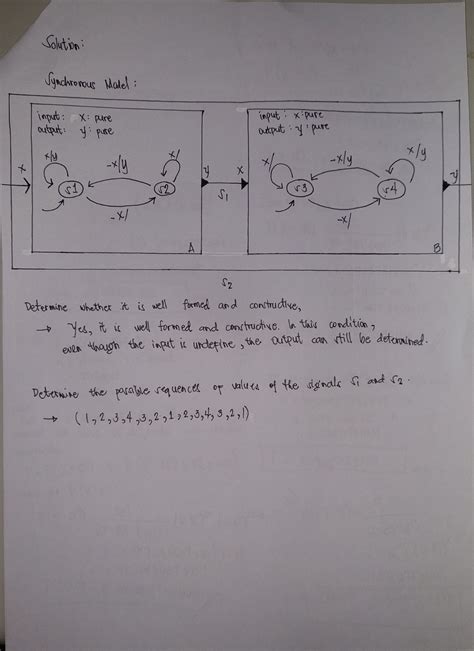 Solution:
Synchronous Model:
input: x: pure
output: y: pure
input: x: pure
output: y: pure
x/y
-x/y
x/
x/
-x/y
x/y
x
s1
s2
y
x
s3
s4
y
-x/
s1
-x/
A
B
s2
Determine whether it is well formed and constructive,
→ Yes, it is well formed and constructive. In this condition,
even though the input is undefine, the output can still be determined.
Determine the possible sequences of values of the signals s1 and s2.
→ (1,2,3,4,3,2,1,2,3,4,3,2,1)